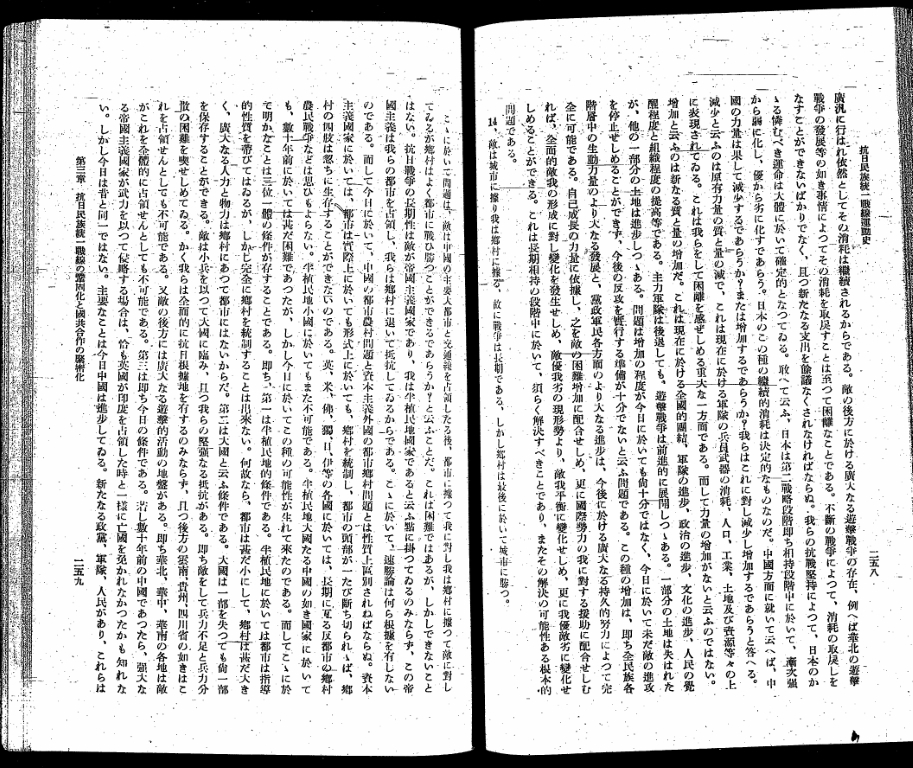 抗日民族統一戰線運動史
二五八
廣汎に行はれ依然としてその消耗は繼續されるからである。敵の後方に於ける廣大なる遊擊戰爭の存在、例へば華北の遊擊
戰爭の發展等の如き事情によつてその消耗を取戾すことは至つて困難なことである。不斷の戰爭によつて、消耗の取戾しを
なすことができないばかりでなく、且つ新たなる支出を餘儀なくされなければならぬ。我らの抗戰堅持によつて、日本のか
ゝる憐むべき運命は大體に於いて確定的となつてゐる。敢へて云ふ、日本は第二戰略段階卽ち相持段階中に於いて、漸次强
から弱に化し、優から劣に化すであらう。日本のこの種の繼續的消耗は決定的なものなのだ。中國方面に就いて云へば、中
國の力量は果して減少するであらうか？または增加するであらうか？我らはこれに對し減少し增加するであらうと答へる。
減少と云ふのは原有力量の質と量の減で、これは現在に於ける軍隊の兵員武器の消耗、人口、工業、土地及び資源等々の上
に表現されてゐる。これは我らをして困難を感ぜしめる重大な一方面である。而して力量の增加がないと云ふのではない。
增加と云ふのは新なる質と量の增加だ。これは現在に於ける全國的團結、軍隊の進步、政治の進步、文化の進步、人民の覺
醒程度と組織程度の提高等である。主力軍隊は後退しても、遊擊戰爭は前進的に展開しつゝある。一部分の土地は失はれた
が、他の一部分の土地は進步しつゝある。問題は增加の程度が今日に於いても尙十分ではなく、今日に於いて未だ敵の進攻
を停止せしめることができず、今後の反攻を實行する準備が十分でないと云ふ問題である。この種の增加は、卽ち全民族各
階層中の生動力量のより大なる發展と、黨政軍民各方面のより大なる進步は、今後に於ける廣大なる持久的努力によつて完
全に可能である。自己成長の力量に依據し、之を敵の困難增加に配合せしめ、更に國際勢力の我に對する援助に配合せしむ
れば、全面的敵我の形成に對し變化を發生せしめ、敵優我劣の現形勢より、敵我平衡に變化せしめ、更に我優敵劣に變化せ
しめることができる。これは長期相持の段階中に於いて、須らく解決すべきことであり、またその解決の可能性ある根本的
問題である。
14、敵は城市に據り我は鄕村に據る、故に戰爭は長期である、しかし鄕村は最後に於いて城市に勝つ。
こゝに於いて問題は、敵は中國の主要大都市と交通線を占領したる後、都市に據つて我に對し我は鄕村に據つて敵に對し
てゐるが鄕村はよく都市に戰ひ勝つことができるであらうか？と云ふことだ。これは困難ではあるが、しかしできないこと
はない。抗日戰爭の長期性は敵が帝國主義國家であり、我は半殖民地國家であると云ふ點に掛つてゐるのみならず、この帝
國主義は我らの都市を占領し、我らは鄕村に退いて抵抗してゐるからである。こゝに於いて、速勝論は何ら根據を有しない
のである。而して今日に於いて、中國の都市農村問題と資本主義外國の都市鄕村問題とは性質上區別されねばならぬ。資本
主義國家に於いては、都市は實際上に於いても形式上に於いても、鄕村を統制し、都市の頭部が一たび斷ち切られゝば、鄕
村の四肢は忽ちに生存することができないのである。英、米、佛、獨、日、伊等の各國に於いては、長期に亙る反都市の鄕村
農民戰爭などは思ひもよらない。半殖民地小國に於いてもまた不可能である。半殖民地大國たる中國の如き國家に於いて
も、數十年前に於いては甚だ困難であつたが、しかし今日に於いてこの種の可能性が生れて來たのである。而してこゝに於
て明かなことは三位一體の條件が存することである。卽ち、第一は半殖民地的條件である。半殖民地に於いては都市は指導
的性質を帶びてはゐるが、しかし完全に鄕村を統制することは出來ない。何故なら、都市は甚だ小にして、鄕村は甚だ大き
く、廣大なる人力と物力は鄕村にあつて都市にはないからだ。第二は大國と云ふ條件である。大國は一部を失つても尙一部
を保存することができる。敵は小兵を以つて大國に臨み、且つ我らの堅强なる抵抗がある。卽ち敵をして兵力不足と兵力分
散の困難を喫せしめてゐる。かく我らは全面的に抗日根據地を有するのみならず、且つ後方の雲南、貴州、四川省の如きはこ
れを占領せんとしても不可能である。又敵の後方には廣大なる遊擊的活動の地盤がある。卽ち華北、華中、華南の各地は敵
がこれを全體的に占領せんとしても不可能である。第三は卽ち今日の條件である。若し數十年前の中國であつたら、强大な
る帝國主義國家が武力を以つて侵略する場合は、恰も英國が印度を占領した時と一樣に亡國を免かれなかつたかも知れな
い。しかし今日は昔と同一ではない。主要なことは今日中國は進步してゐる。新たなる政黨、軍隊、人民があり、これらは
第三章 抗日民族統一戰線の鞏固化と國共合作の緊密化
二五九